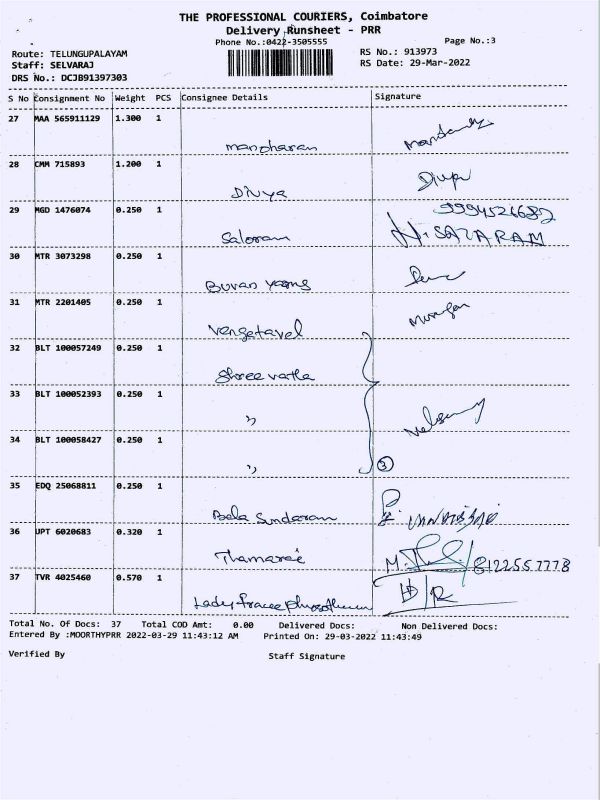 THE PROFESSIONAL COURIERS, Coimbatore
Delivery Runsheet - PRR
Phone No.:0422-3505555 Page No.:3
Route: TELUNGUPALAYAM RS No.: 913973
Staff: SELVARAJ RS Date: 29-Mar-2022
DRS No.: DCJB91397303
S No Consignment No Weight PCS Consignee Details Signature
27 MAA 565911129 1.300 1
manoharan
28 CMM 715893 1.200 1
Divya
29 MGD 1476074 0.250 1 9994526682
N. SAJARAM
30 MTR 3073298 0.250 1
31 MTR 2201405 0.250 1 Murugan
Vengetavel
32 BLT 100057249 0.250 1
Shree
33 BLT 100052393 0.250 1
"
34 BLT 100058427 0.250 1
" 3
35 EDQ 25068811 0.250 1
Bala Sundaram
36 UPT 6020683 0.320 1
Thamarai M. 8122557778
37 TVR 4025460 0.570 1
Total No. Of Docs: 37 Total COD Amt: 0.00 Delivered Docs: Non Delivered Docs:
Entered By :MOORTHYPRR 2022-03-29 11:43:12 AM Printed On: 29-03-2022 11:43:49
Verified By Staff Signature